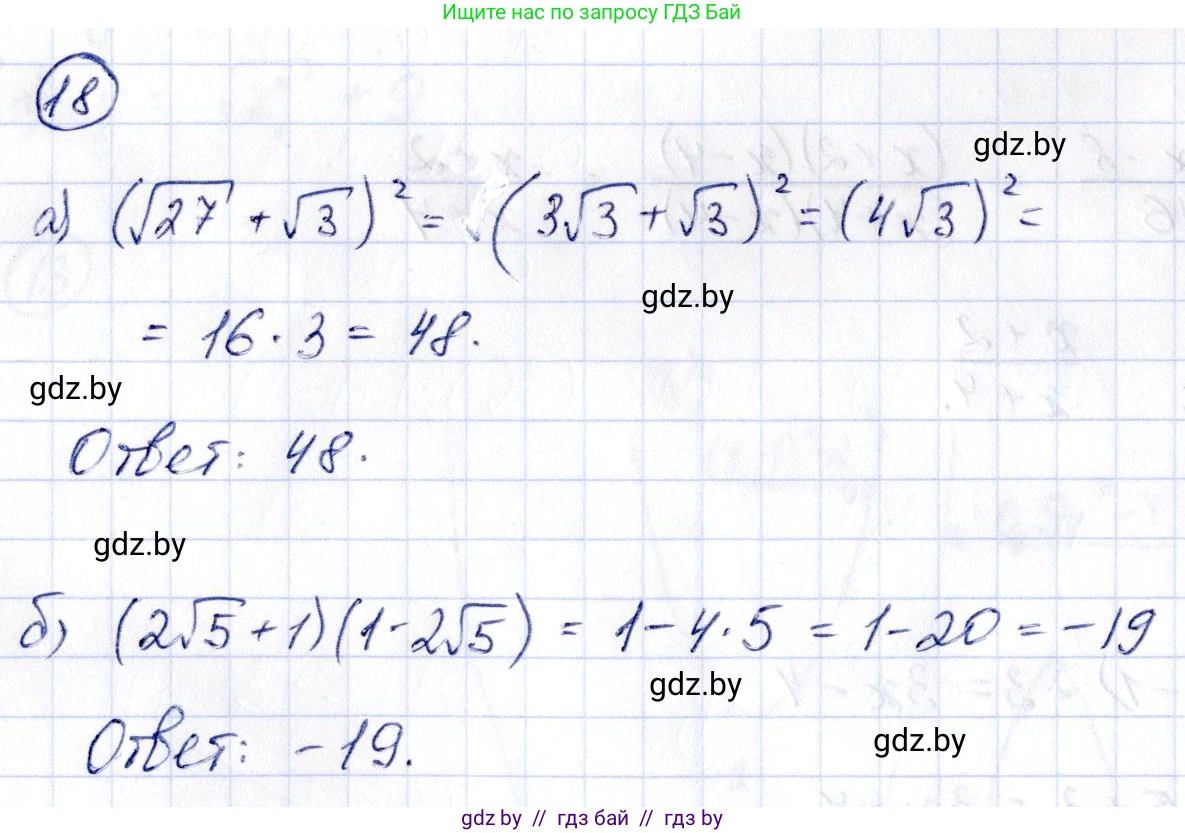 Ищите нас по запросу ГДЗ Бай
18
gdz.by
а) (√27 + √3)² = (3√3 + √3)² = (4√3)² =
gdz.by
= 16 · 3 = 48.
gdz.by
Ответ: 48.
gdz.by
б) (2√5 + 1)(1 - 2√5) = 1 - 4 · 5 = 1 - 20 = -19
gdz.by
Ответ: -19.
gdz.by
gdz.by // гдз бай // гдз by